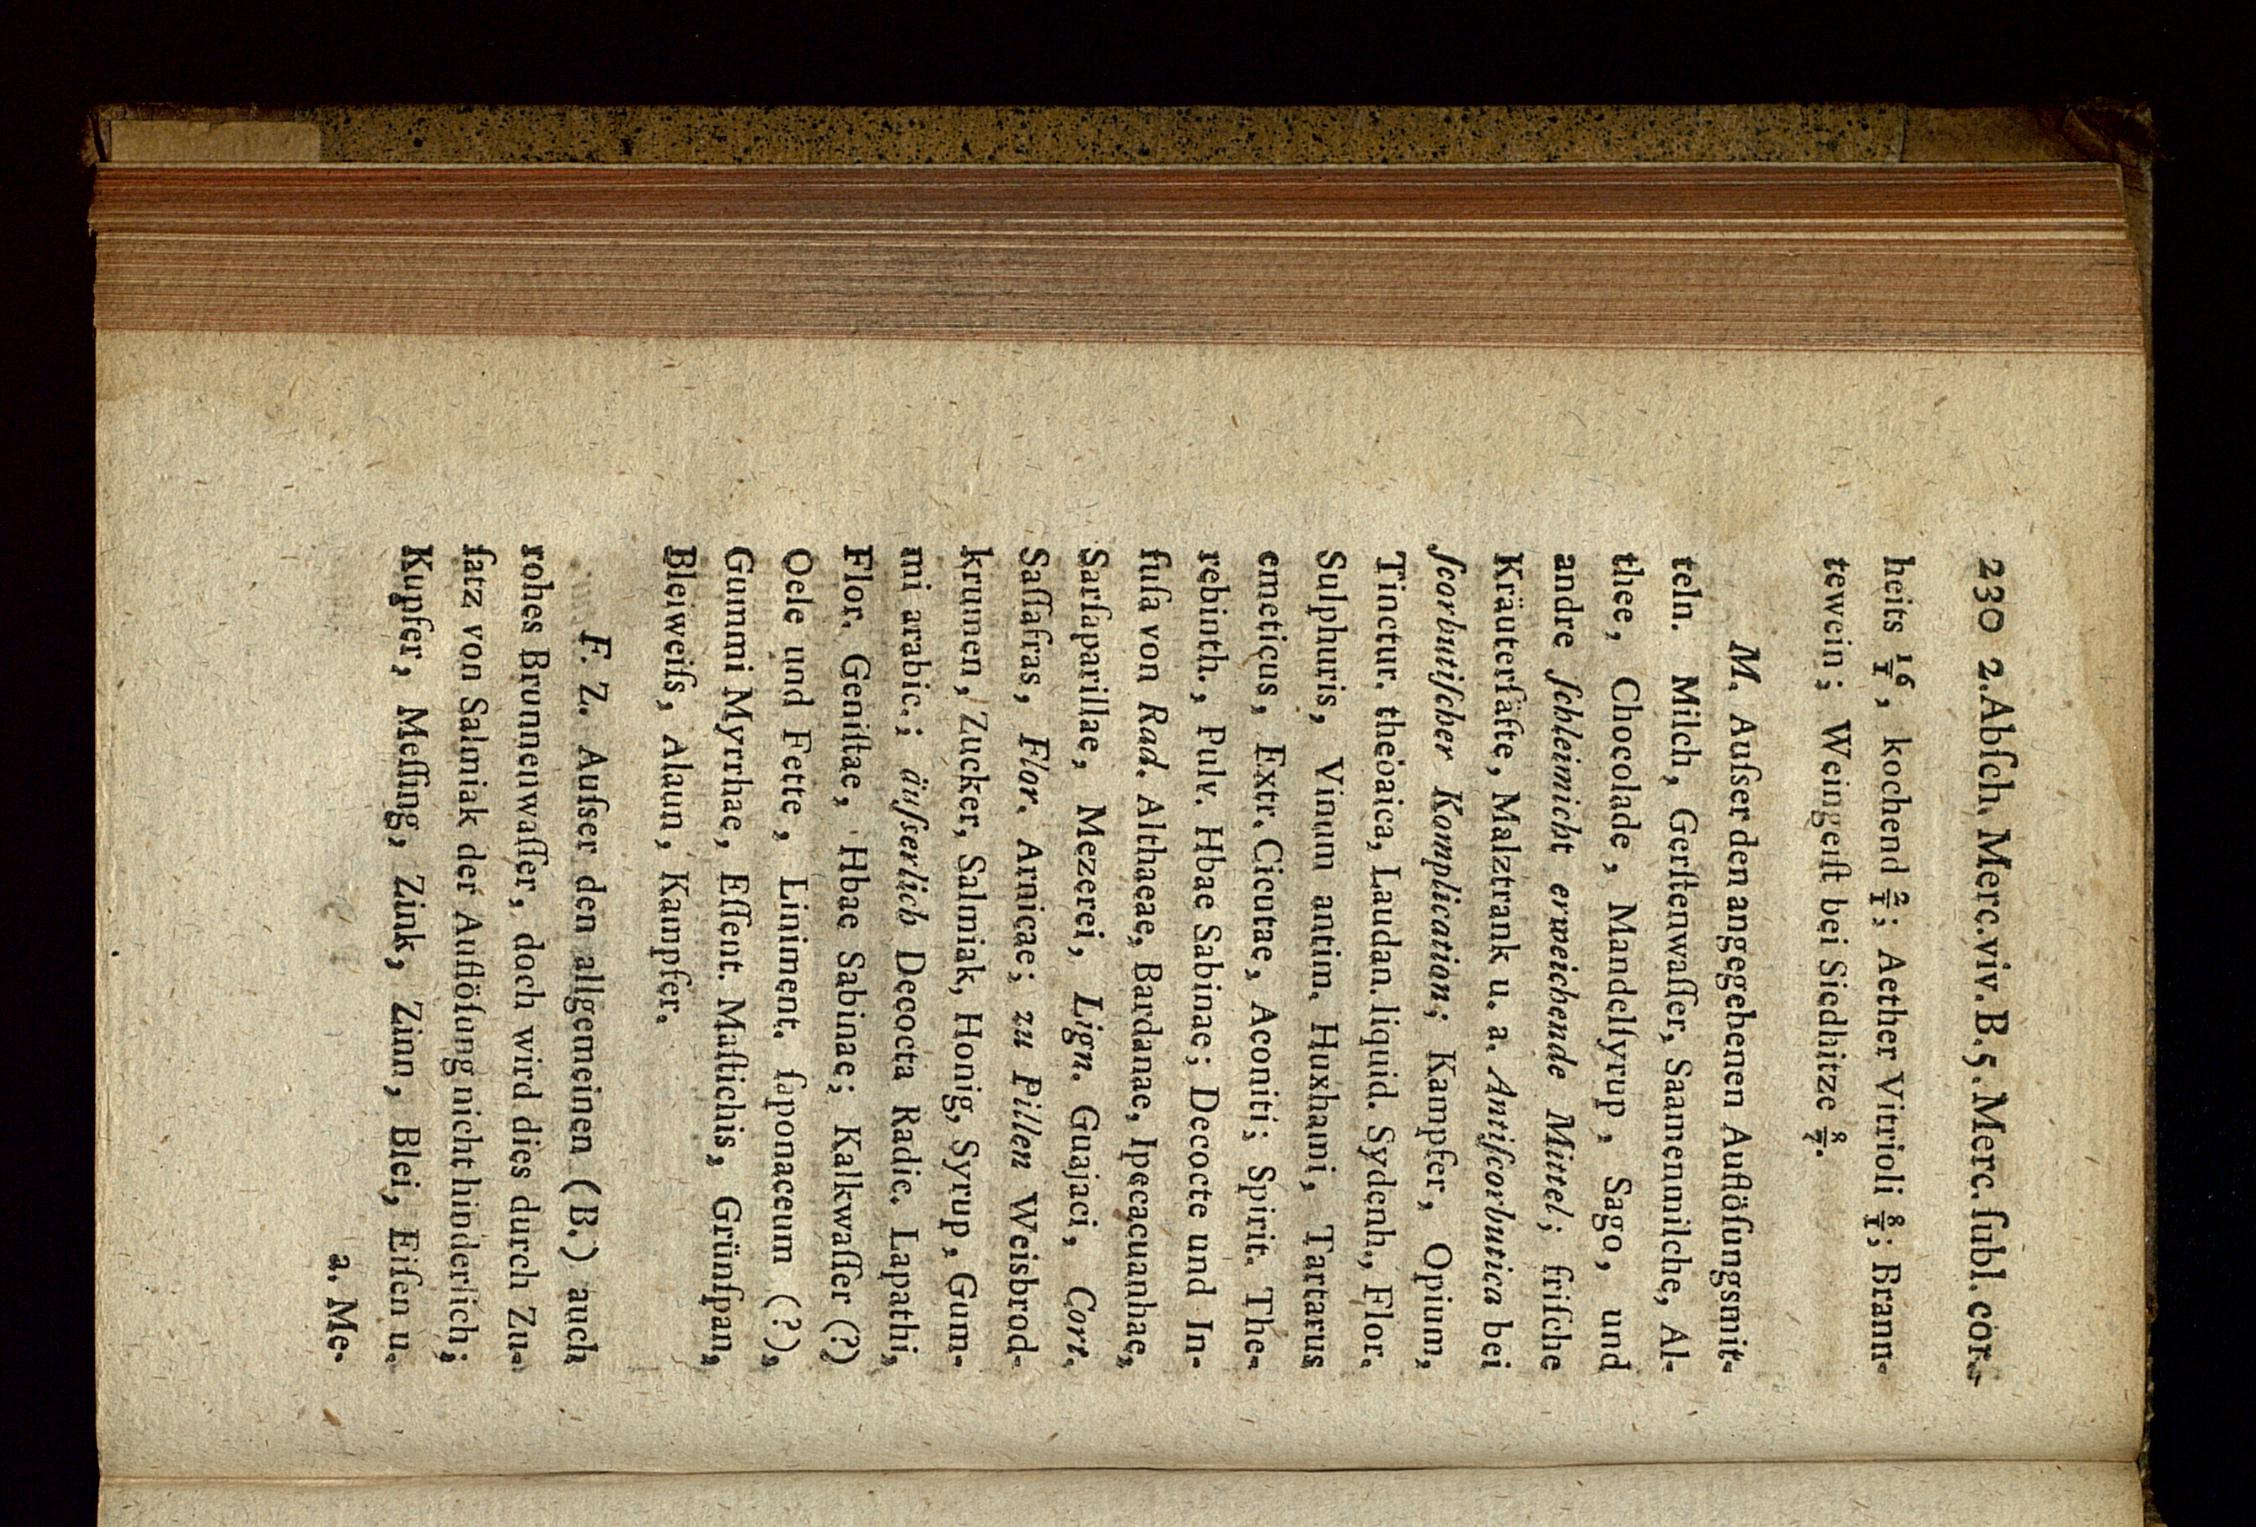 230 2. Abſch. Merc. viv. B. 5. Merc. ſubl. cor-
heits 16/1, kochend 2/1; Aether Vitrioli 8/1; Brann-
tewein; Weingeiſt bei Siedhitze 8/7.
M. Auſser den angegebenen Auflöſungsmit-
teln. Milch, Gerſtenwaſſer, Saamenmilche, Al-
thee, Chocolade, Mandelſyrup, Sago, und
andre ſchleimicht erweichende Mittel; friſche
Kräuterſäfte, Malztrank u. a. Antiſcorbutica bei
ſcorbutiſcher Komplication; Kampfer, Opium,
Tinctur. theoaica, Laudan. liquid. Sydenh., Flor.
Sulphuris, Vinum antim. Huxhami, Tartarus
emeticus, Extr. Cicutae, Aconiti; Spirit. The-
rebinth., Pulv. Hbae Sabinae; Decocte und In-
fuſa von Rad. Althaeae, Bardanae, Ipecacuanhae,
Sarſaparillae, Mezerei, Lign. Guajaci, Cort.
Saſſafras, Flor. Arnicae; zu Pillen Weisbrod-
krumen, Zucker, Salmiak, Honig, Syrup, Gum-
mi arabic.; äuſserlich Decocta Radic. Lapathi,
Flor. Geniſtae, Hbae Sabinae; Kalkwaſſer (?)
Oele und Fette, Liniment. ſaponaceum (?),
Gummi Myrrhae, Eſſent. Maſtichis, Grünſpan,
Bleiweiſs, Alaun, Kampfer.
F. Z. Auſser den allgemeinen (B.) auch
rohes Brunnenwaſſer, doch wird dies durch Zu-
ſatz von Salmiak der Auflöſung nicht hinderlich;
Kupfer, Meſſing, Zink, Zinn, Blei, Eiſen u.
a. Me-